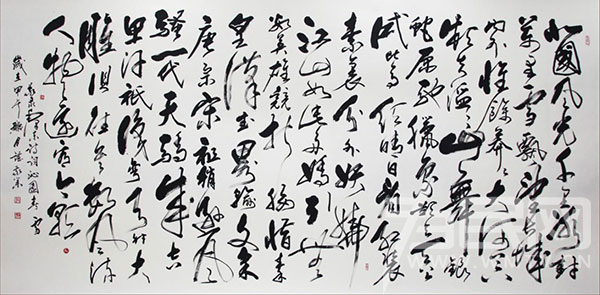 北國風光千里冰封
萬里雪飄望長城
內外惟餘莽莽大河上下
頓失滔滔山舞銀
蛇原馳臘象欲與天公
試比高須晴日看紅裝
素裹分外妖嬈
江山如此多嬌引無
數英雄競折腰惜秦
皇漢武略輸文采
唐宗宋祖稍遜風
騷一代天驕成吉
思汗祇識彎弓射大
雕俱往矣數風流
人物還看今朝
毛泽东詩詞沁園春雪
歲在甲午